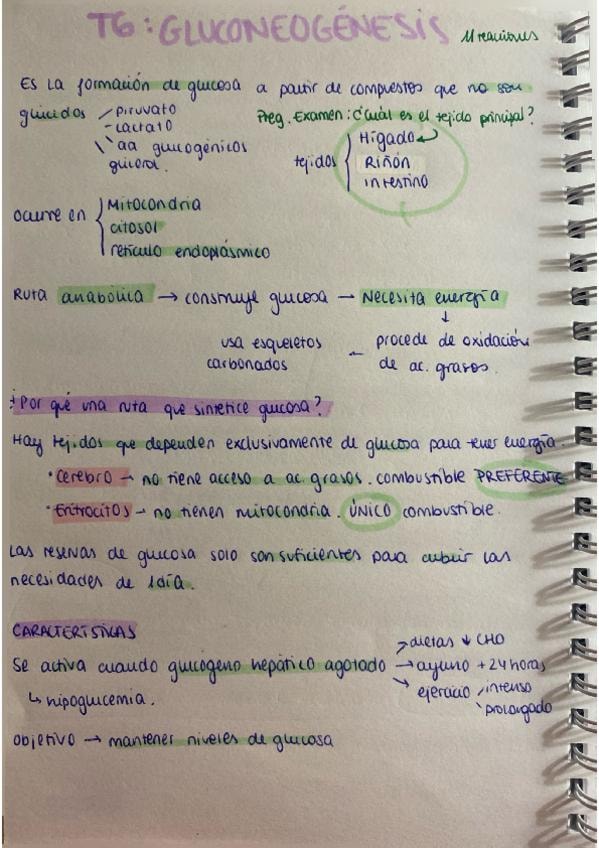 T6: GLUCONEOGÉNESIS 11 reacciones
Es la formación de glucosa a partir de compuestos que no son
glúcidos
piruvato
lactato
aa glucogénicos
glicerol.
Preg. Examen: ¿Cuál es el tejido principal?
tejidos
Hígado
Riñón
intestino
ocurre en
Mitocondria
citosol
retículo endoplásmico
Ruta anabólica → construye glucosa → Necesita energía
↓
procede de oxidación
de ac. grasos.
usa esqueletos
carbonados
¿Por qué una ruta que sintetice glucosa?
Hay tejidos que dependen exclusivamente de glucosa para tener energía.
· Cerebro → no tiene acceso a ac. grasos. combustible PREFERENTE
· Eritrocitos → no tienen mitocondria. ÚNICO combustible.
Las reservas de glucosa solo son suficientes para cubrir las
necesidades de 1día.
CARACTERÍSTICAS
Se activa cuando glucógeno hepático agotado
→ dietas ↓ CHO
→ ayuno +24 horas
→ ejercicio
intenso
prolongado
↳ hipoglucemia.
objetivo → mantener niveles de glucosa